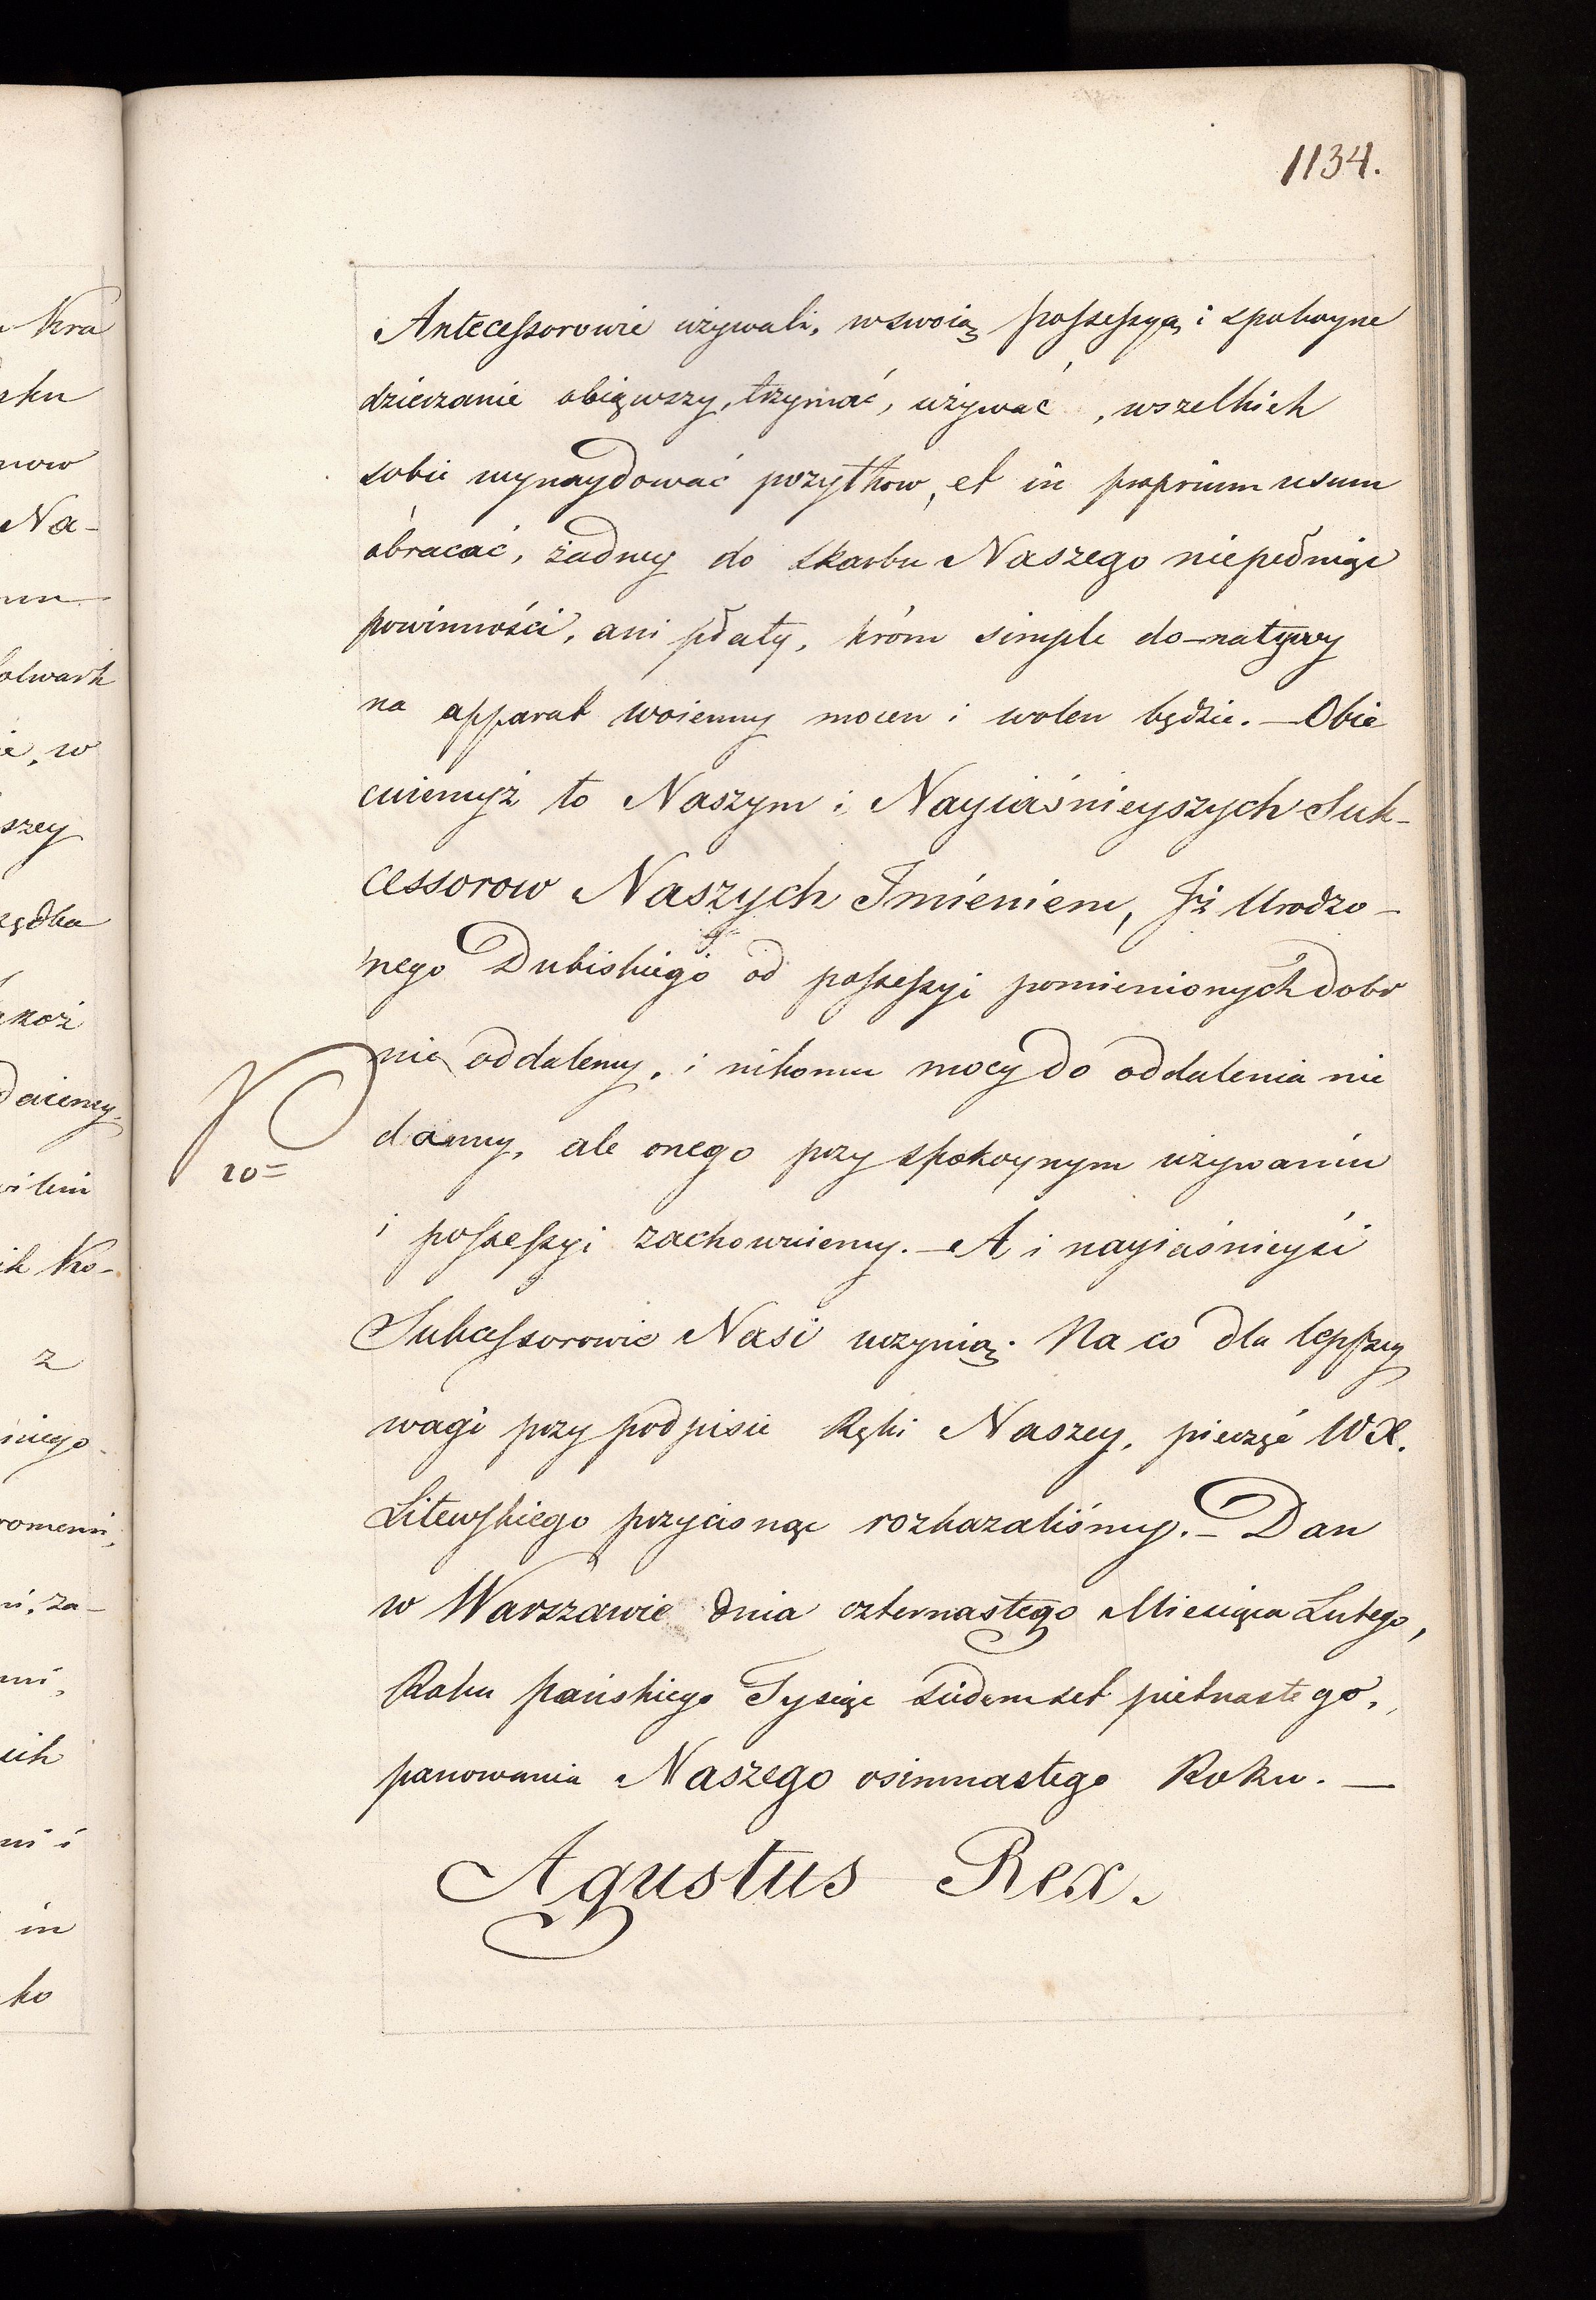 1134.
Kra
sku
now
Na-
olwark
ie, w
szey
noż
Ko-
z
niego
romeni,
ni, za-
ni i
in
ko
Antecessorowie używali, w swoią possessyą i spokoyne
dzierżanie obiąwszy, trzymać, używać, wszelkich
sobie wynaydować pożytkow, et in proprium usum
obracać, żadney do Skarbu Naszego niepełniąc
powinności, ani płaty, króm simple do-natywy
na apparat woienny mocen i wolen będzie. — Obie
cuiemyż to Naszym i Nayiaśnieyszych Suk-
cessorow Naszych Imieniem, Iż Urodzo-
nego Dubiskiego od possessyi pomienionych dobr
nie oddalemy, i nikomu mocy do oddalenia nie
damy, ale onego przy spokoynym używaniu
10=
i possessyi zachowuiemy. — A i nayiaśnieyśi
Sukcessorowie Nasi uczynią. Na co dla lepszey
wagi przy podpisie Ręki Naszey, pieczęć W X.
Litewskiego przycisnąc rozkazaliśmy. — Dan
w Warszawie dnia czternastego Miesiąca Lutego,
Roku pańskiego Tysiąc siedemset pietnastego,
panowania Naszego osimnastego Roku. —
Agustus Rex.